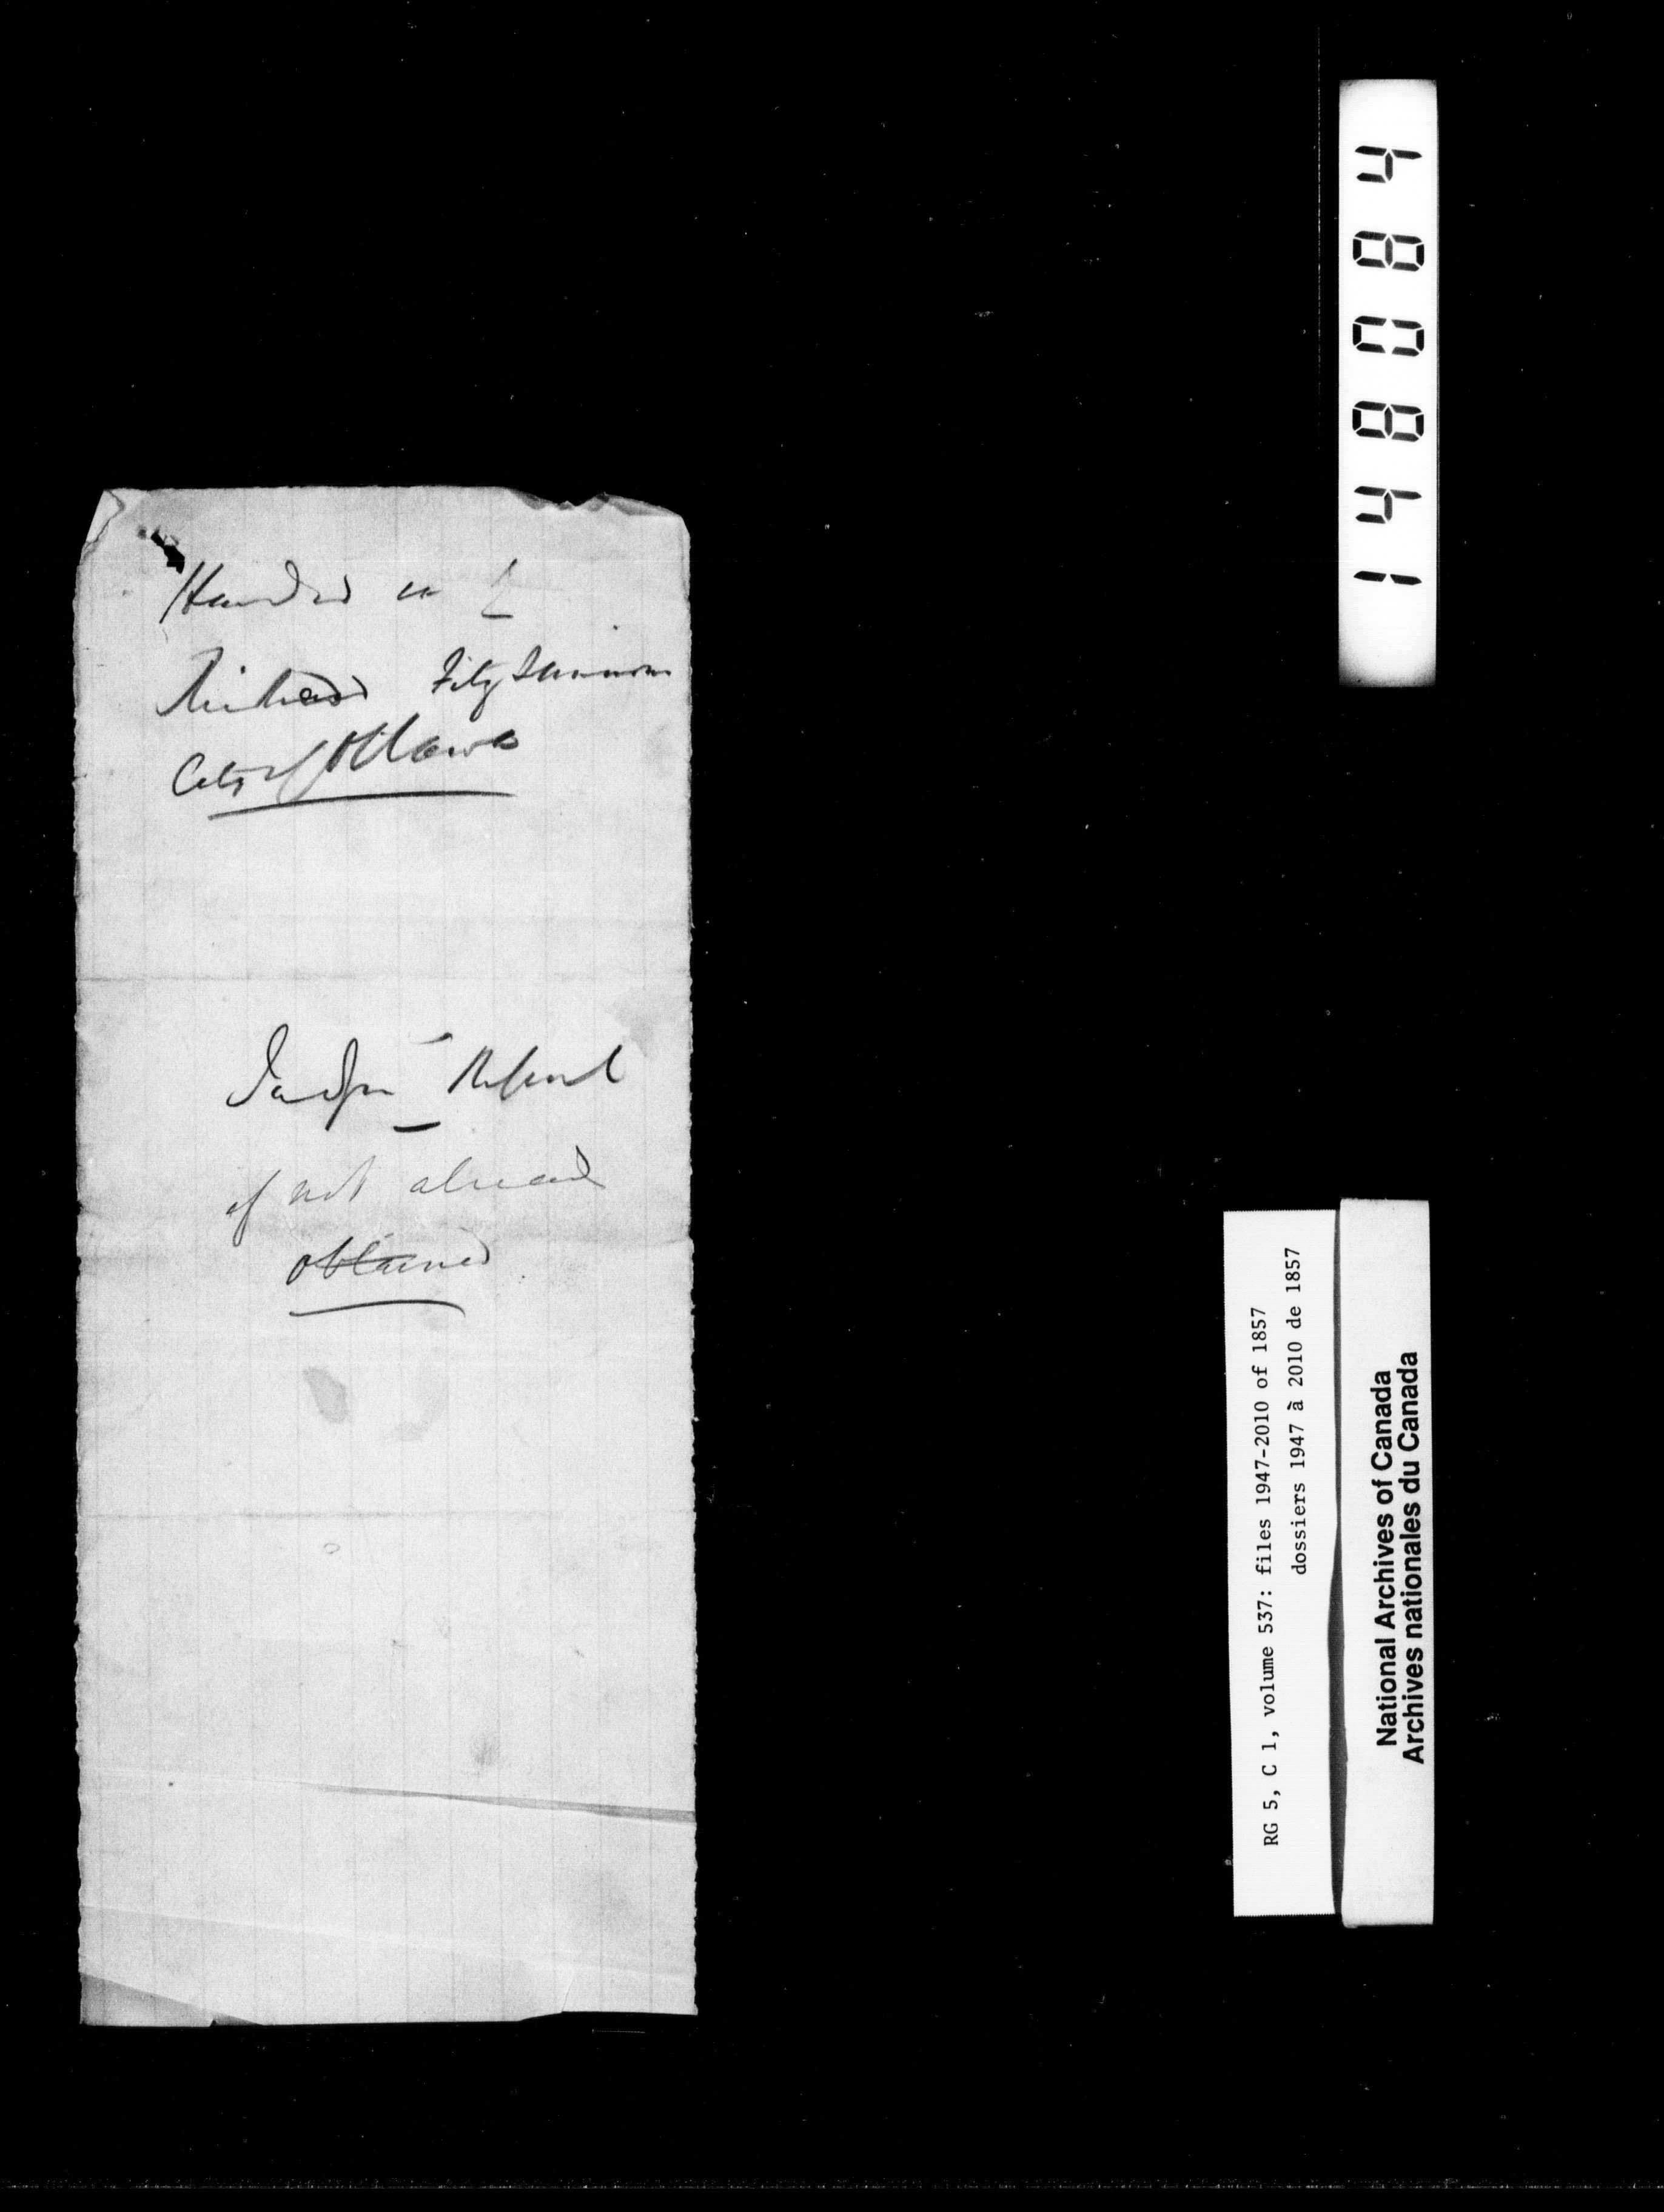 Handed in by
Richard FitzSimmons
City of Ottawa
Judge's Report
if not already
obtained
148084
RG 5, C 1, volume 537: files 1947-2010 of 1857
dossiers 1947 à 2010 de 1857
National Archives of Canada
Archives nationales du Canada